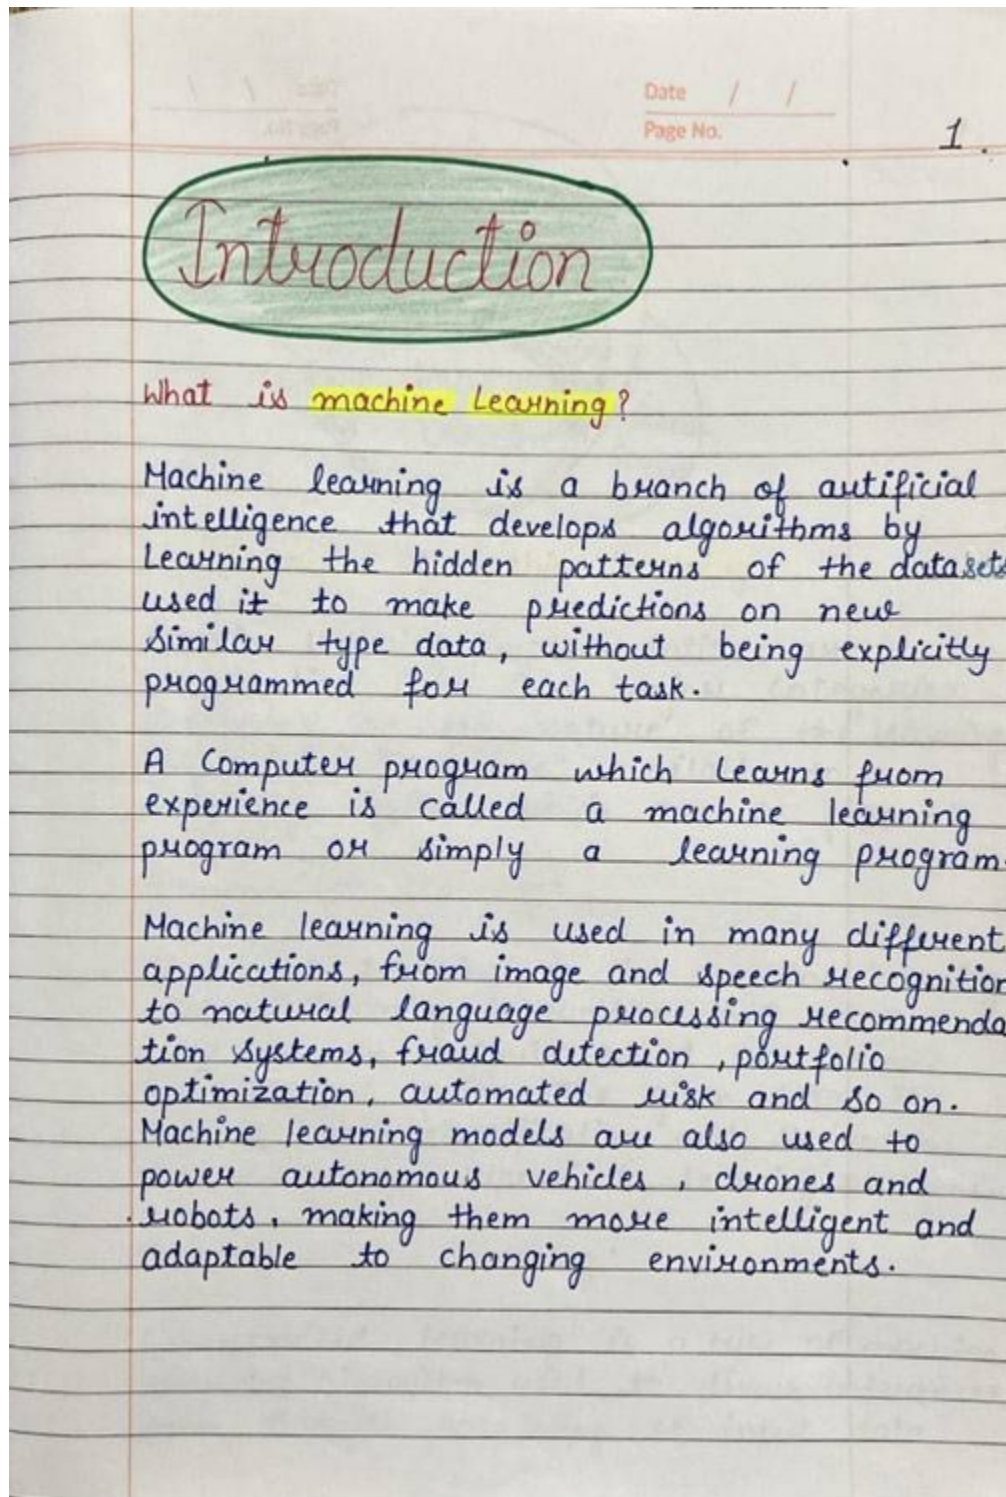 Date / /
Page No.
1.
Introduction
What is machine Learning?
Machine learning is a branch of artificial
intelligence that develops algorithms by
Learning the hidden patterns of the datasets
used it to make predictions on new
similar type data, without being explicitly
programmed for each task.
A Computer program which Learns from
experience is called a machine learning
program or simply a learning program.
Machine learning is used in many different
applications, from image and speech recognition
to natural language processing recommenda
tion systems, fraud detection, portfolio
optimization, automated risk and so on.
Machine learning models are also used to
power autonomous vehicles, drones and
robots, making them more intelligent and
adaptable to changing environments.